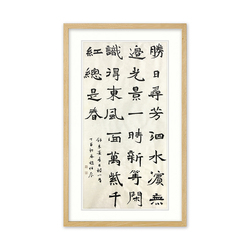 勝日尋芳泗水濱無
邊光景一時新等閒
識得東風面萬紫千
紅總是春